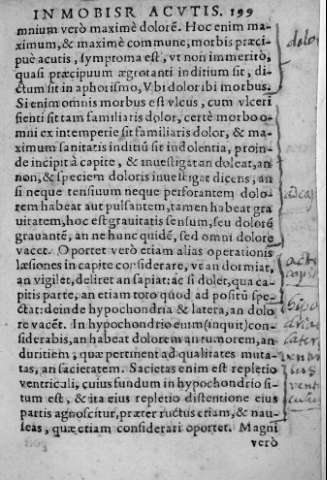 IN MOBISR ACVTIS. 199
mnium verò maximè dolorē. Hoc enim ma-
ximum, & maximè commune, morbis præci-
puè acutis, symptoma est, vt non immeritò,
quasi præcipuum ægrotanti inditium sit, di-
ctum sit in aphorismo, Vbi dolor ibi morbus.
Si enim omnis morbus est vlcus, cum vlceri
sienti sit tam familiaris dolor, certè morbo o-
mni ex intemperie sit familiaris dolor, & ma-
ximum sanitatis inditiū sit indolentia, proin-
de incipit à capite, & inuestigat an doleat, an
non, & speciem doloris inuestigat dicens, an
si neque tensiuum neque perforantem dolo-
rem habeat aut pulsantem, tamen habeat gra
uitatem, hoc est grauitatis sensum, seu dolorē
grauantē, an ne hunc quidē, sed omni dolore
vacet. Oportet verò etiam alias operationis
læsiones in capite considerare, vt an dormiat,
an vigilet, deliret an sapiat: ac si dolet, qua ca-
pitis parte, an etiam toto quod ad positū spe-
ctat: deinde hypochondria & latera, an dolo
re vacēt. In hypochondrio enim (inquit) con-
siderabis, an habeat dolorem an tumorem, an
duritiem, quæ pertinent ad qualitates muta-
tas, an sacietatem. Sacietas enim est repletio
ventriculi, cuius fundum in hypochondrio si-
tum est, & ita eius repletio distentione eius
partis agnoscitur, præter ructus etiam, & nau-
seas, quæ etiam considerari oportet. Magni
verò
dolo